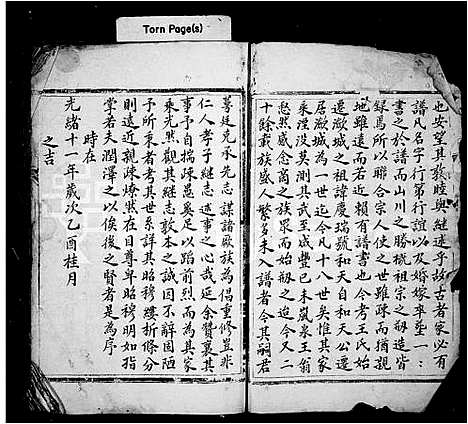 Torn Page(s)
也安望其敦睦與継述乎故古者家必有
譜凡名字行第行誼以及婚嫁率塟一一
書之於譜而山川之勝概祖宗之刱造皆
録焉所以聯合宗人使之世雖疎而猶親
地雖遠而若近賴有譜書也今者王氏始
遷瀫城之祖諱慶瑞號和天自和天公遷
居瀫城為一世迄今凡十八世矣惟其家
乗湮没莫測其武至咸豐巳未嵐泉王翁
愁然感念商之族眾而始刱之迨今又二
十餘載族盛人繁多未入譜者今其嗣君
蓴廷克承先志謀諸厥族為倡重修豈非
仁人孝子継志述事之心哉延余贊襄其
事予自揣疎愚奚足以踏前烈而為其家
乗光然觀其継志敦本之誠固不辭固陋
予所秉者考其世系詳其昭穆縷析條分
則逺近親疎燎然在目尊卑昭穆明如指
掌若夫潤澤之以俟後之賢者是為序
時在
光緒十一年歲次乙酉桂月
之吉